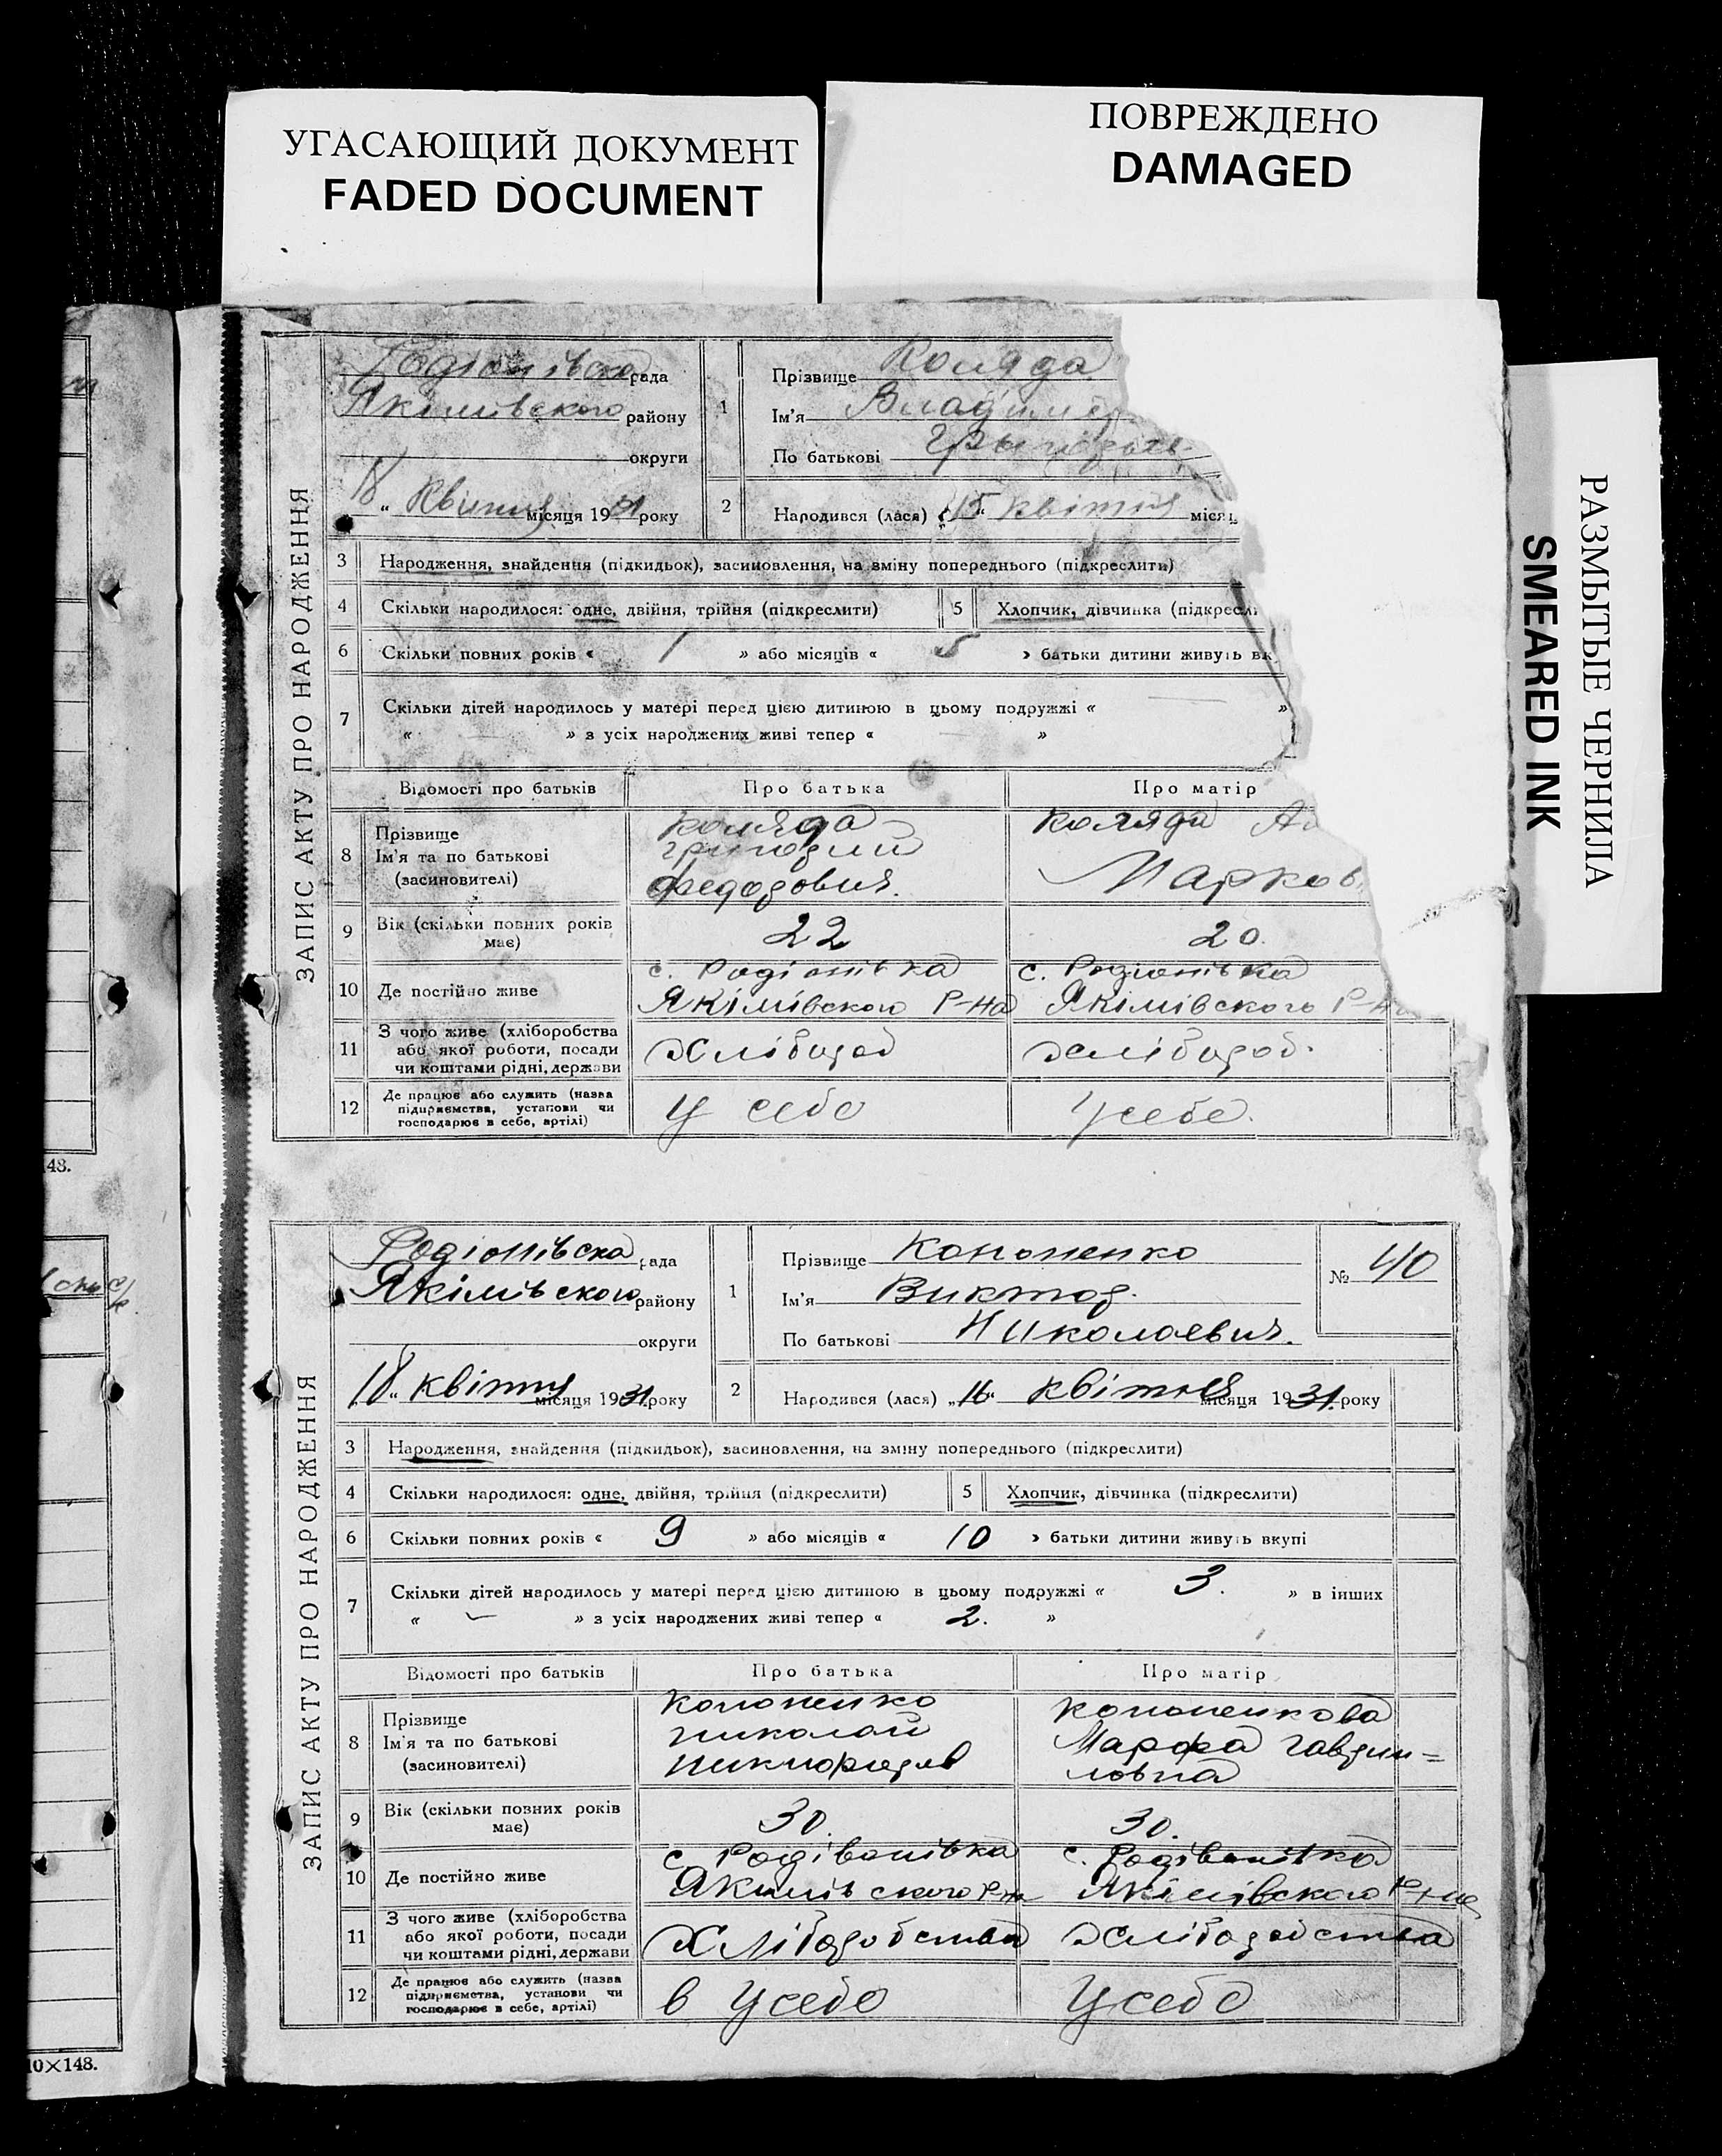 УГАСАЮЩИЙ ДОКУМЕНТ
FADED DOCUMENT
ПОВРЕЖДЕНО
DAMAGED
РАЗМЫТЫЕ ЧЕРНИЛА
SMEARED INK
ЗАПИС АКТУ ПРО НАРОДЖЕННЯ
Родіонівска рада
Якімівского району
округи
18 " Квітня місяця 1931 року
1 Прізвище Коляда
Ім'я Владимер
По батькові
2 Народився (лася) „15" квітня місяц
3 Народження, знайдення (підкидьок), засиновлення, на зміну попереднього (підкреслити)
4 Скільки народилося: одне, двійня, трійня (підкреслити) 5 Хлопчик, дівчинка (підкресл
6 Скільки повних років « 1 » або місяців « 5 » батьки дитини живуть вк
7 Скільки дітей народилось у матері перед цією дитиною в цьому подружжі « »
« — » з усіх народжених живі тепер « »
Відомості про батьків Про батька Про матір
8 Прізвище Ім'я та по батькові (засиновителі)
Коляда Григорий Федорович.
Коляда Марков
9 Вік (скільки повних років має) 22 20.
10 Де постійно живе
с. Родіонівка Якімівского Р-на
с. Родіонівка Якімівского Р-н
11 З чого живе (хліборобства або якої роботи, посади чи коштами рідні, держави
Хлібороб Хлібороб.
12 Де працює або служить (назва підприємства, установи чи господарює в себе, артілі)
У себе У себе.
48.
ЗАПИС АКТУ ПРО НАРОДЖЕННЯ
Родіонівска рада
Якімівского району
округи
„18" квітня місяця 1931. року
1 Прізвище Кононенко
Ім'я Виктор.
По батькові Николаевич.
№ 40
2 Народився (лася) „16" квітня місяця 1931. року
3 Народження, знайдення (підкидьок), засиновлення, на зміну попереднього (підкреслити)
4 Скільки народилося: одне, двійня, трійня (підкреслити) 5 Хлопчик, дівчинка (підкреслити)
6 Скільки повних років « 9 » або місяців « 10 » батьки дитини живуть вкупі
7 Скільки дітей народилось у матері перед цією дитиною в цьому подружжі « 3. » в інших
« — » з усіх народжених живі тепер « 2. »
Відомості про батьків Про батька Про матір
8 Прізвище Ім'я та по батькові (засиновителі)
Кононенко Николай Никифоров
Кононенкова Марфа Гаврии=ловна
9 Вік (скільки повних років має) 30. 30.
10 Де постійно живе
с. Родівонівка Якимівского Р-на
с. Родівонівка Якімівского Р-на
11 З чого живе (хліборобства або якої роботи, посади чи коштами рідні, держави
Хліборобства Хліборобства
12 Де працює або служить (назва підприємства, установи чи господарює в себе, артілі)
в У себе У себе
10×148.